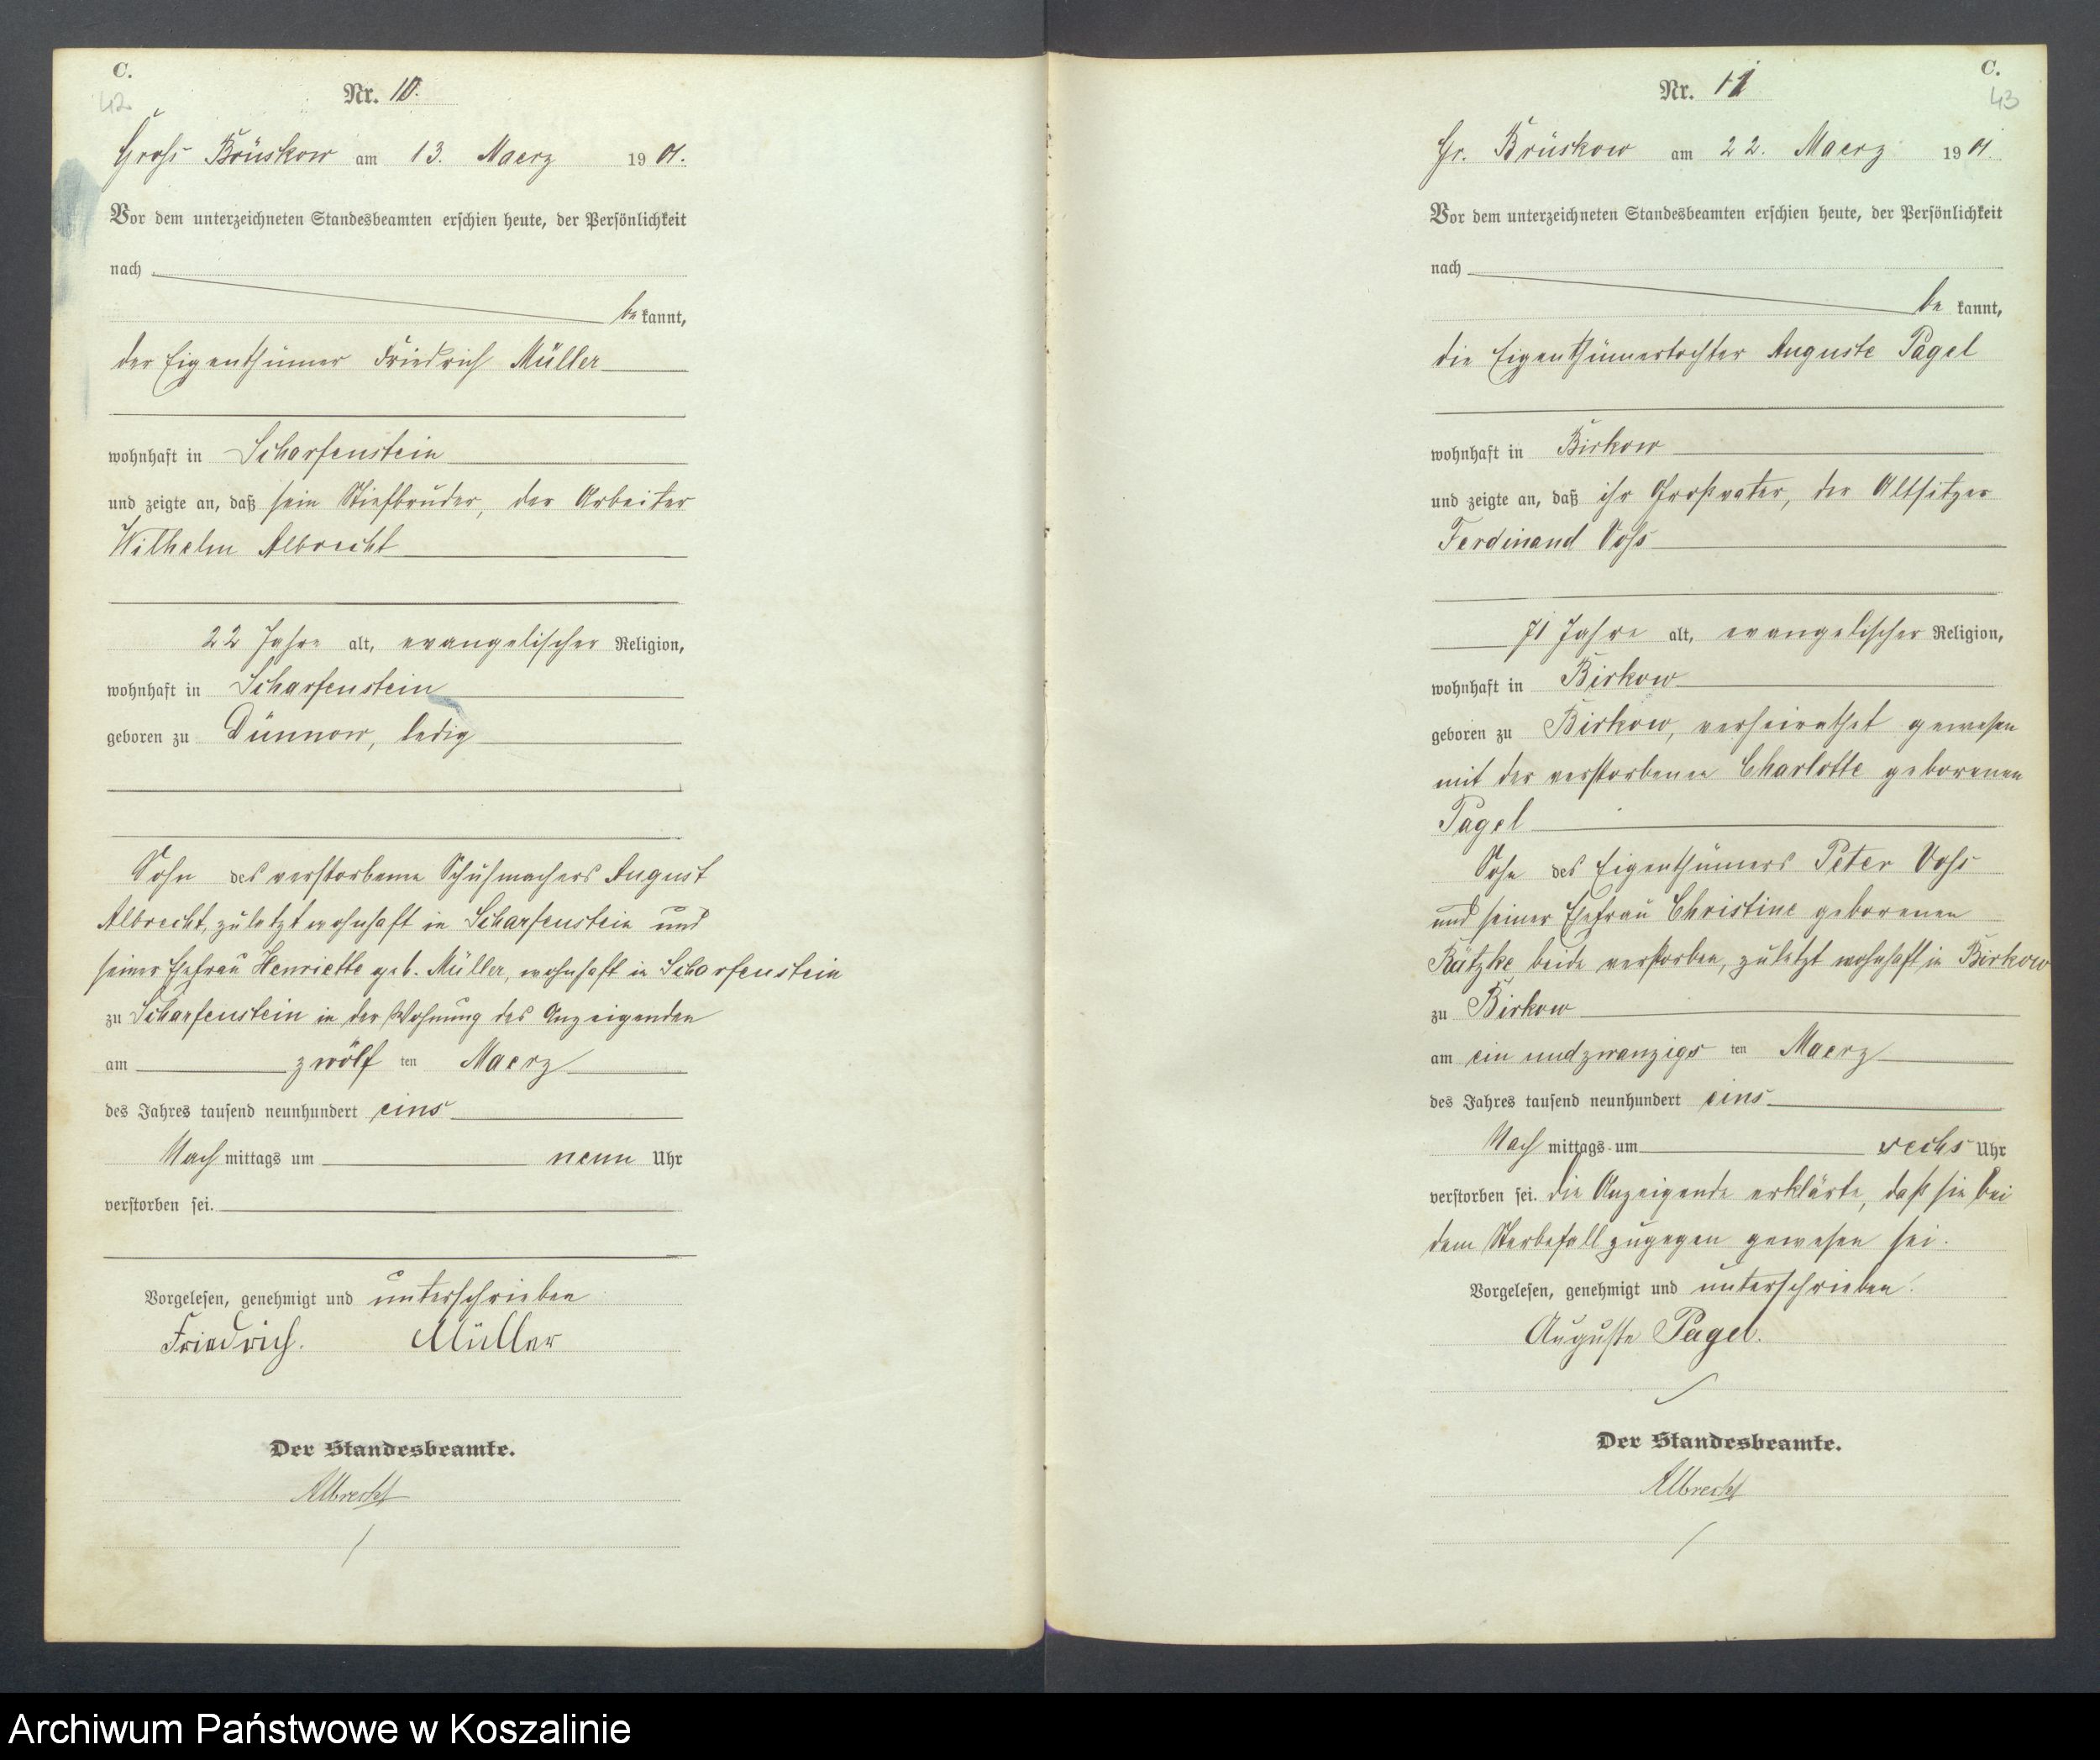 C.
42
Nr. 10.
Gross Brüskow am 13. Maerz 1901.
Vor dem unterzeichneten Standesbeamten erschien heute, der Persönlichkeit
nach
bekannt,
der Eigenthümer Friedrich Müller
wohnhaft in Scharfenstein
und zeigte an, daß sein Stiefbruder, der Arbeiter
Wilhelm Albrecht
22 Jahre alt, evangelischer Religion,
wohnhaft in Scharfenstein
geboren zu Dünnow, ledig
Sohn des verstorbenen Schuhmachers August
Albrecht, zuletzt wohnhaft in Scharfenstein und
seiner Ehefrau Henriette geb. Müller, wohnhaft in Scharfenstein
zu Scharfenstein in der Wohnung des Anzeigenden
am zwölf ten Maerz
des Jahres tausend neunhundert eins
Nachmittags um neun Uhr
verstorben sei.
Vorgelesen, genehmigt und unterschrieben
Friedrich. Müller
Der Standesbeamte.
Albrecht
C.
43
Nr. 11
Gr. Brüskow am 22. Maerz 1901.
Vor dem unterzeichneten Standesbeamten erschien heute, der Persönlichkeit
nach
be kannt,
die Eigenthümertochter Auguste Pagel
wohnhaft in Birkow
und zeigte an, daß ihr Großvater, der Altsitzer
Ferdinand Voss
71 Jahre alt, evangelischer Religion,
wohnhaft in Birkow
geboren zu Birkow, verheirathet gewesen
mit der verstorbenen Charlotte geborenen
Pagel
Sohn des Eigenthümers Peter Voss
und seiner Ehefrau Christine geborenen
Rätzke, beide verstorben, zuletzt wohnhaft in Birkow
zu Birkow
am ein und zwanzigs ten Maerz
des Jahres tausend neunhundert eins
Nach mittags um sechs Uhr
verstorben sei. Die Anzeigende erklärte, daß sie bei
dem Sterbefall zugegen gewesen sei.
Vorgelesen, genehmigt und unterschrieben.
Auguste Pagel.
Der Standesbeamte.
Albrecht
Archiwum Państwowe w Koszalinie